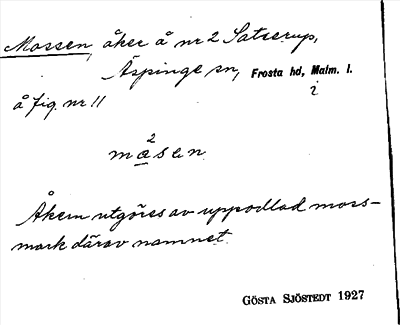 Mossen, åker å nr 2 Satserup,
Äspinge sn, Frosta hd, Malm. l.
i
å fig. nr 11
2
måsen
Åkern utgöres av uppodlad moss-
mark därav namnet.
GÖSTA SJÖSTEDT 1927